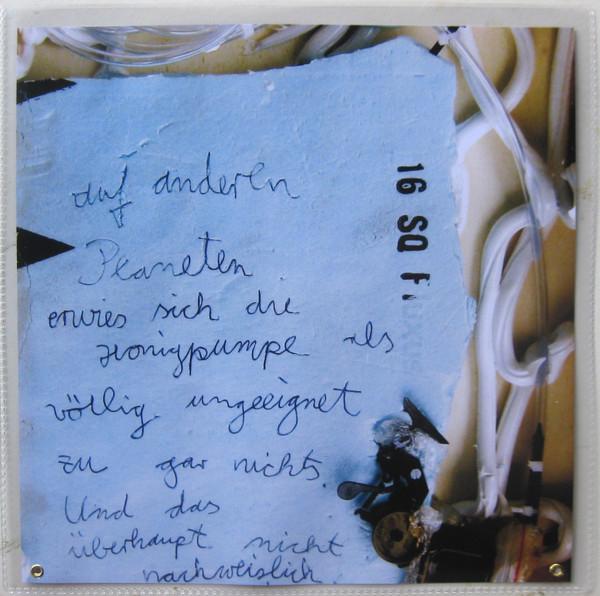 auf anderen
Planeten
erwies sich die
Honigpumpe als
völlig ungeeignet
zu gar nichts.
Und das
überhaupt nicht
nachweislich.
16 SQ F